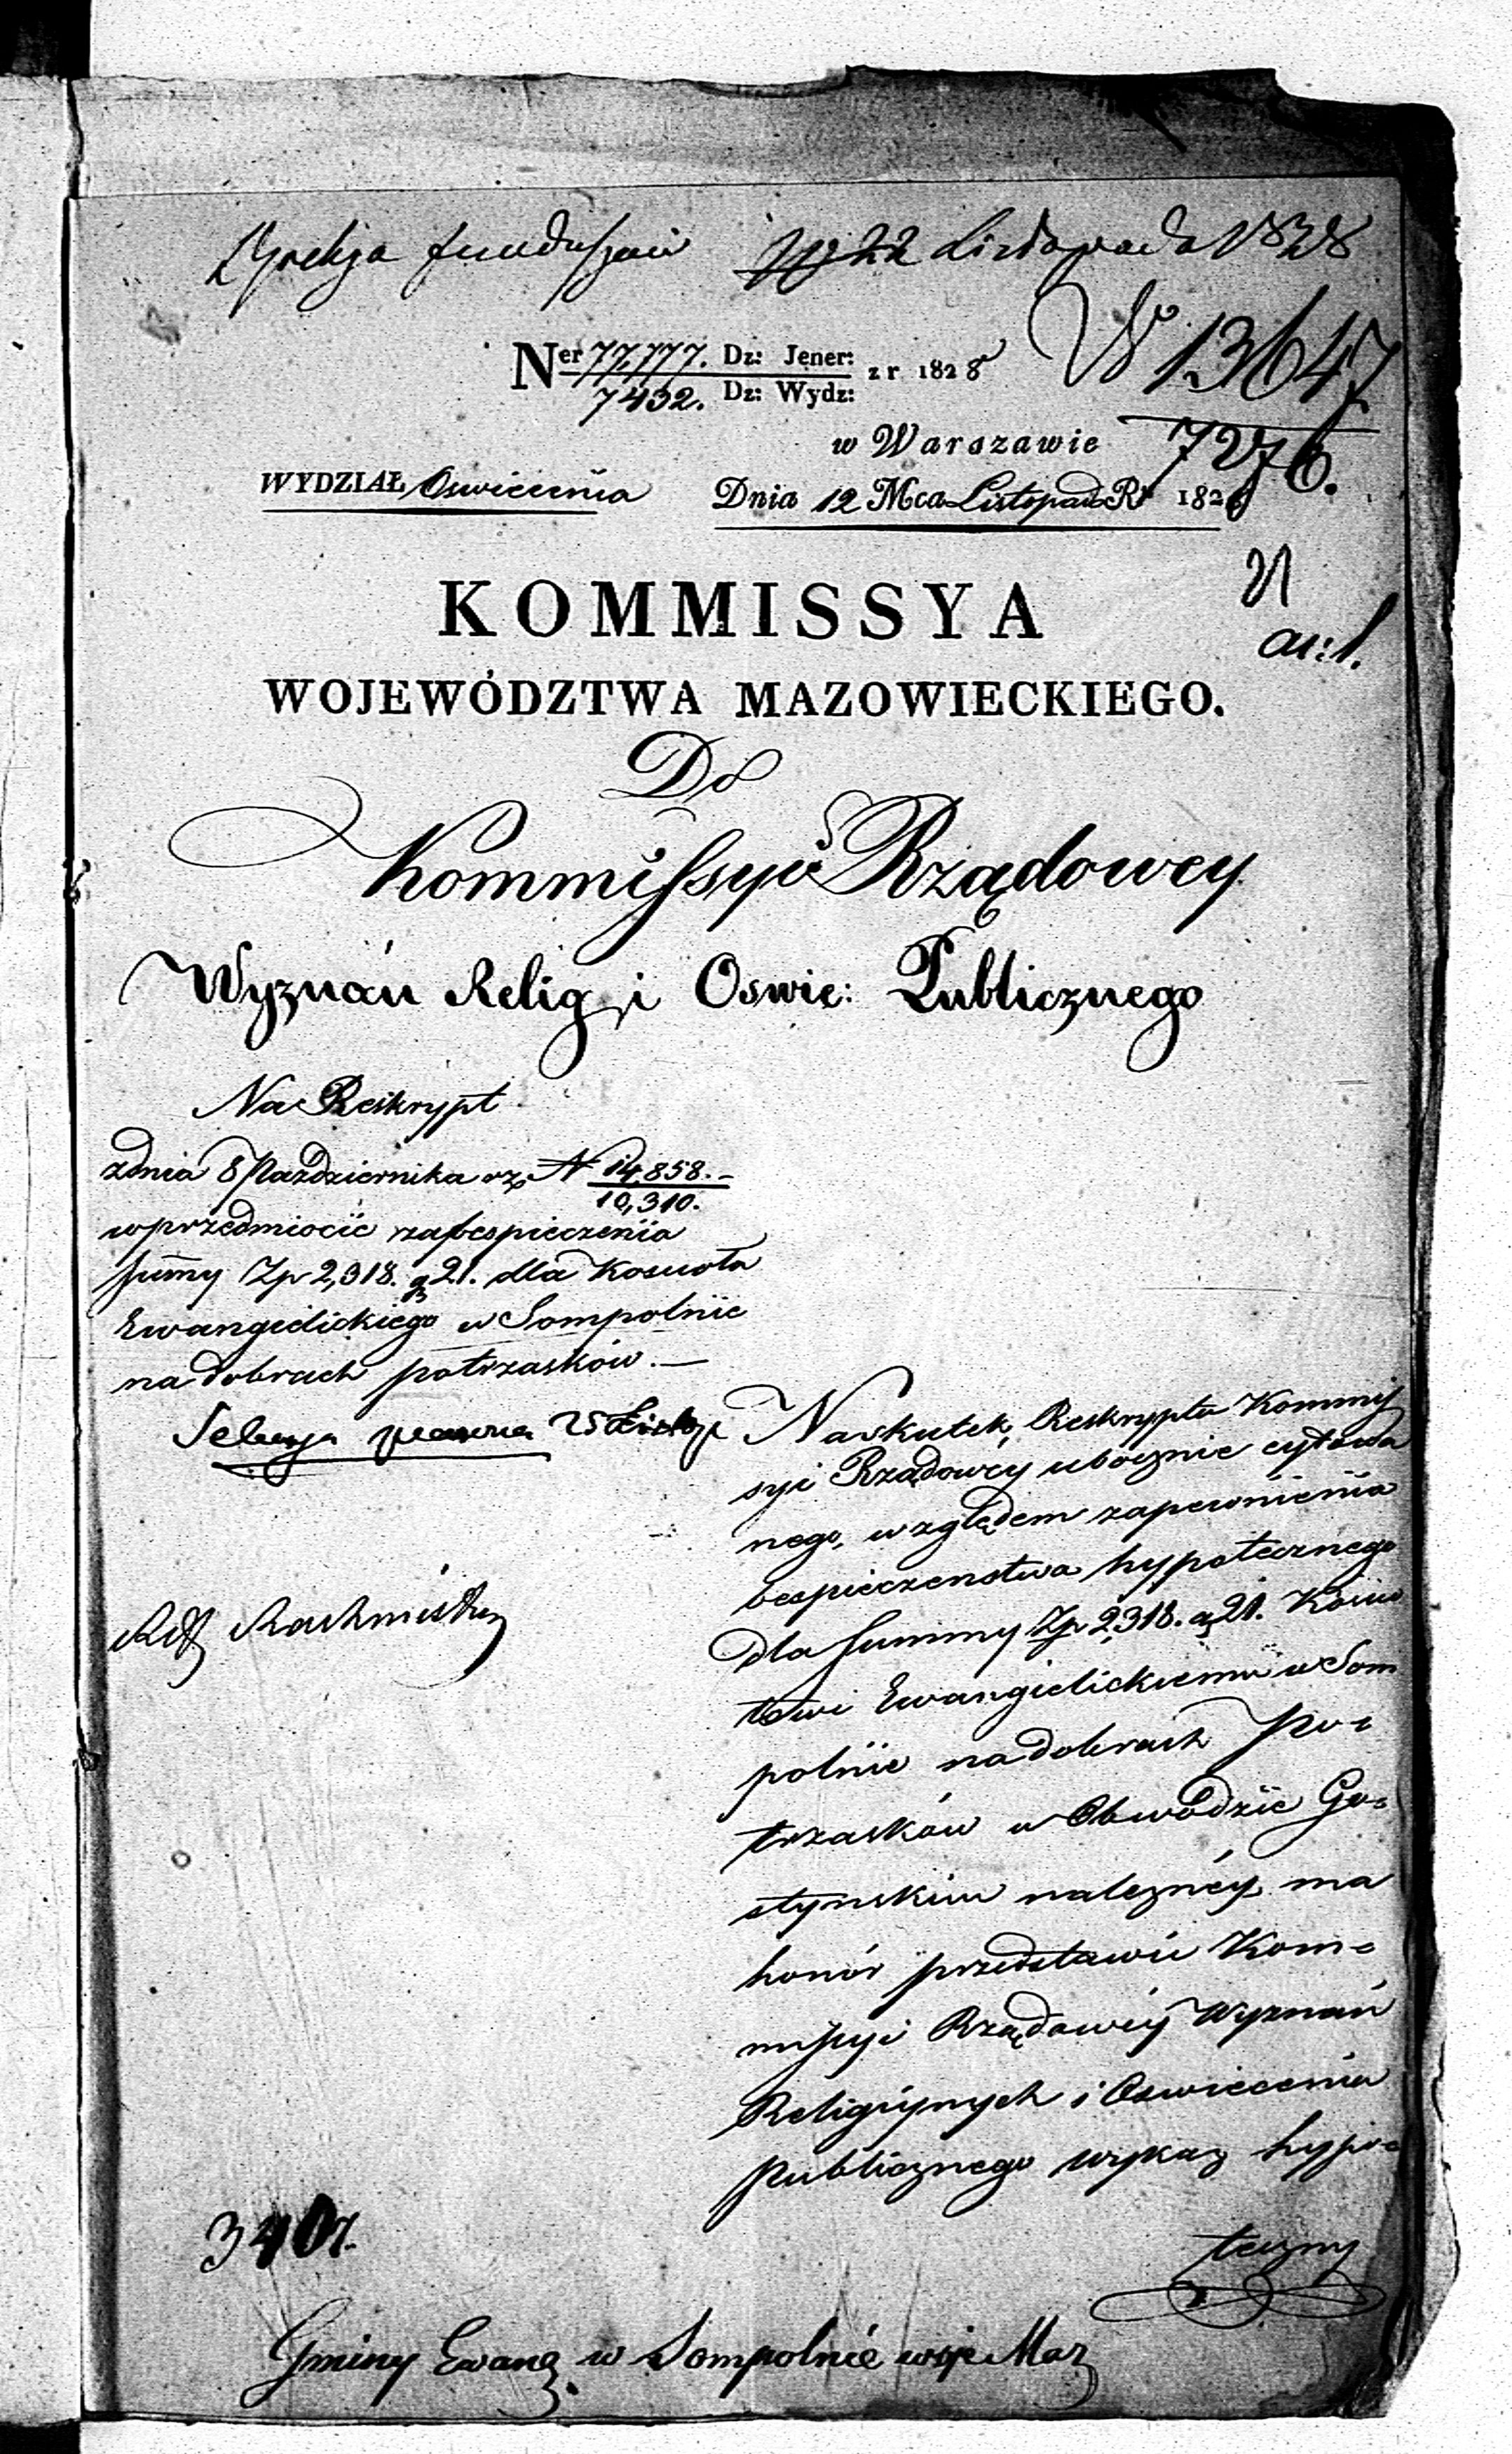 Dyrekcja funduszów 22 Listopada 1828
N 13647
7276.
Ner 77,777. Dz: Jener: z r 1828
7432. Dz: Wydz:
w Warszawie
WYDZIAŁ Oswiecenia Dnia 12 Mca Listopada R. 1828
ar: 1.
KOMMISSYA
WOJEWÓDZTWA MAZOWIECKIEGO.
Do
Kommissyi Rządowey
Wyznań Relig i Oswie: Publicznego
Na Reskrypt
z dnia 8 Października rz. N 14,858.
10,310.
w przedmiocie zabespieczenia
summy Zp 2,318. g 21. dla Koscioła
Ewangielickiego w Sompolnie
na dobrach Potrzasków.
Sekcya prawna 25 Listop
Na skutek Reskryptu Kommis
syi Rządowey ubocznie cytowa
nego, względem zapewnienia
bespieczenstwa hypotecznego
dla Summy Zp 2,318. g 21. Kościo
łowi Ewangielickiemu w Som
polnie na dobrach Po-
trzasków w Obwodzie Go-
stynskim należnéy, ma
honór przedstawić Kom-
missyi Rządowéy Wyznań
Religijnych i Oswiecenia
Publicznego wykaz hypo-
teczny
Rachmistrz
3407.
Gminy Ewang. w Sompolnie woje Maz